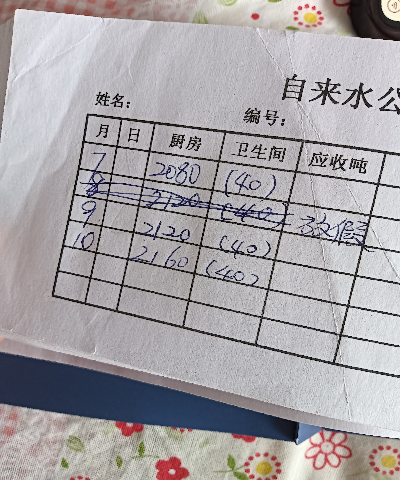 自来水公
姓名： 编号：
月 日 厨房 卫生间 应收吨
7 2080 (40)
8 2120 (40) 放假
9 2120 (40)
10 2160 (40)